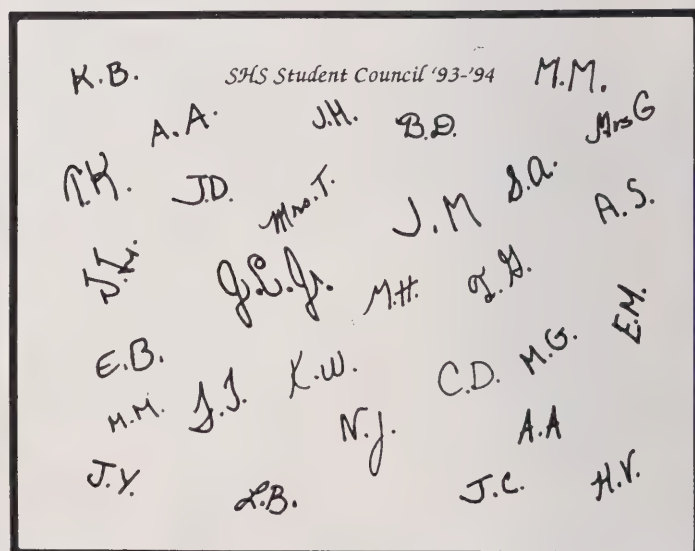 K.B.
SHS Student Council '93-'94
M.M.
A.A.
J.H.
B.D.
Mrs G
T.K.
J.D.
Mrs. T.
J.M
S.A.
A.S.
J.L.Jr.
M.H.
E.M.
E.B.
M.M.
K.W.
C.D.
M.G.
N.J.
A.A
J.Y.
L.B.
J.C.
H.V.